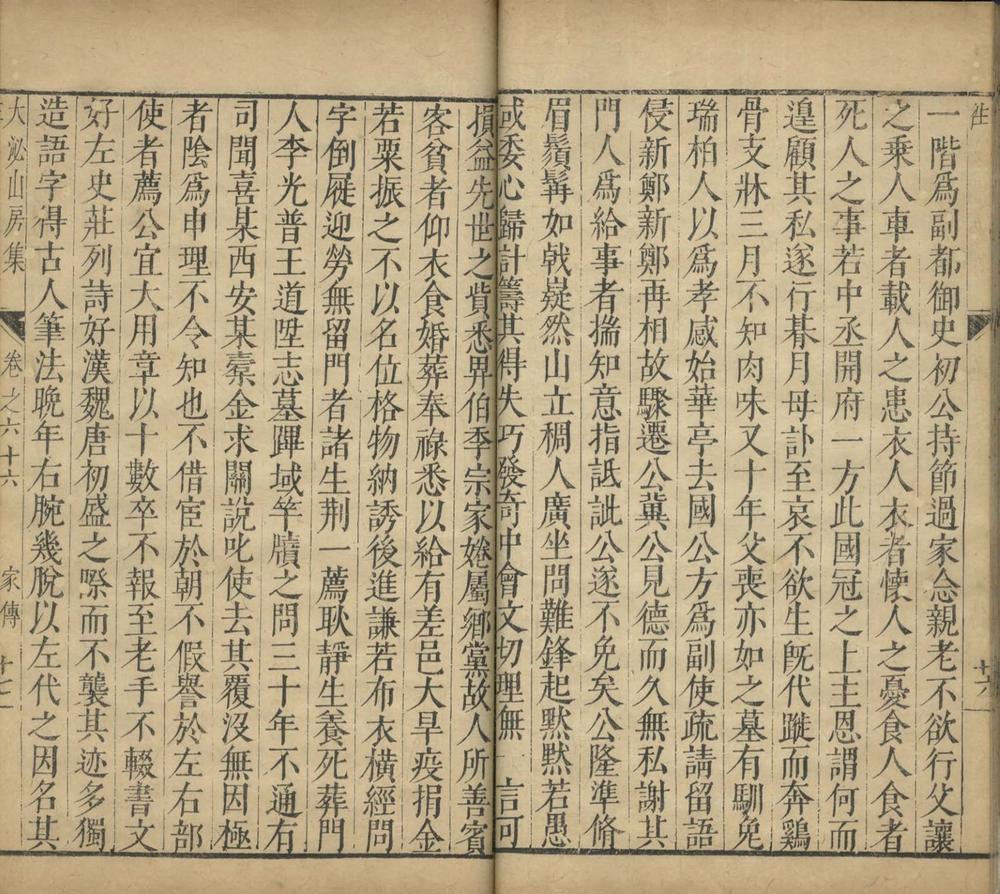 一階爲副都御史初公持節過家念親老不欲行父讓
之乘人車者載人之患衣人衣者懷人之憂食人食者
死人之事若中丞開府一方此國冠之上主恩謂何而
遑顧其私遂行朞月母訃至哀不欲生旣代蹝而奔鷄
骨支牀三月不知肉味又十年父喪亦如之墓有馴免
瑞柏人以爲孝感始華亭去國公方爲副使疏請留語
侵新鄭新鄭再相故驟遷公冀公見德而久無私謝其
門人爲給事者揣知意指詆訿公遂不免矣公隆準脩
眉鬚髯如戟嶷然山立稠人廣坐問難鋒起默默若愚
或委心歸計籌其得失巧發奇中會文切理無一言可
損益先世之貲悉畀伯季宗家婘屬鄉黨故人所善賓
客貧者仰衣食婚葬奉祿悉以給有差邑大旱疫捐金
若粟振之不以名位格物納誘後進謙若布衣橫經問
字倒屣迎勞無留門者諸生荆一薦耿靜生養死葬門
人李光普王道陞志墓蹕域竿牘之問三十年不通有
司聞喜某西安某橐金求關說叱使去其覆沒無因極
者陰爲申理不令知也不借宦於朝不假譽於左右部
使者薦公宜大用章以十數卒不報至老手不輟書文
好左史莊列詩好漢魏唐初盛之際而不襲其迹多獨
造語字得古人筆法晚年右腕幾脫以左代之因名其
大泌山房集 卷之六十六 家傳 十七